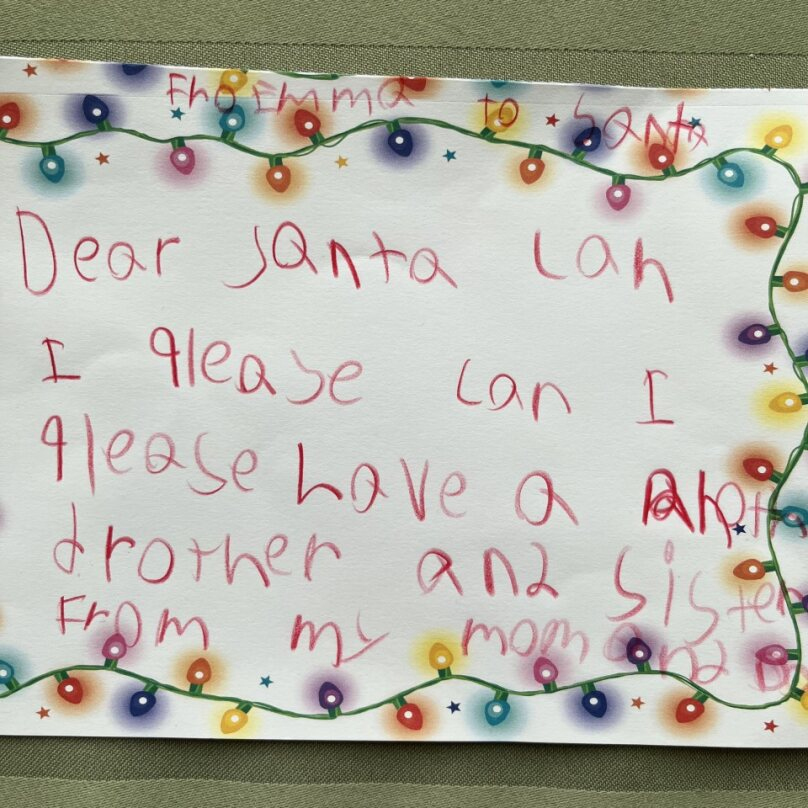 Fho Emma to Santa
Dear Santa can
I please can I
please have a
brother and sister
From my mom and